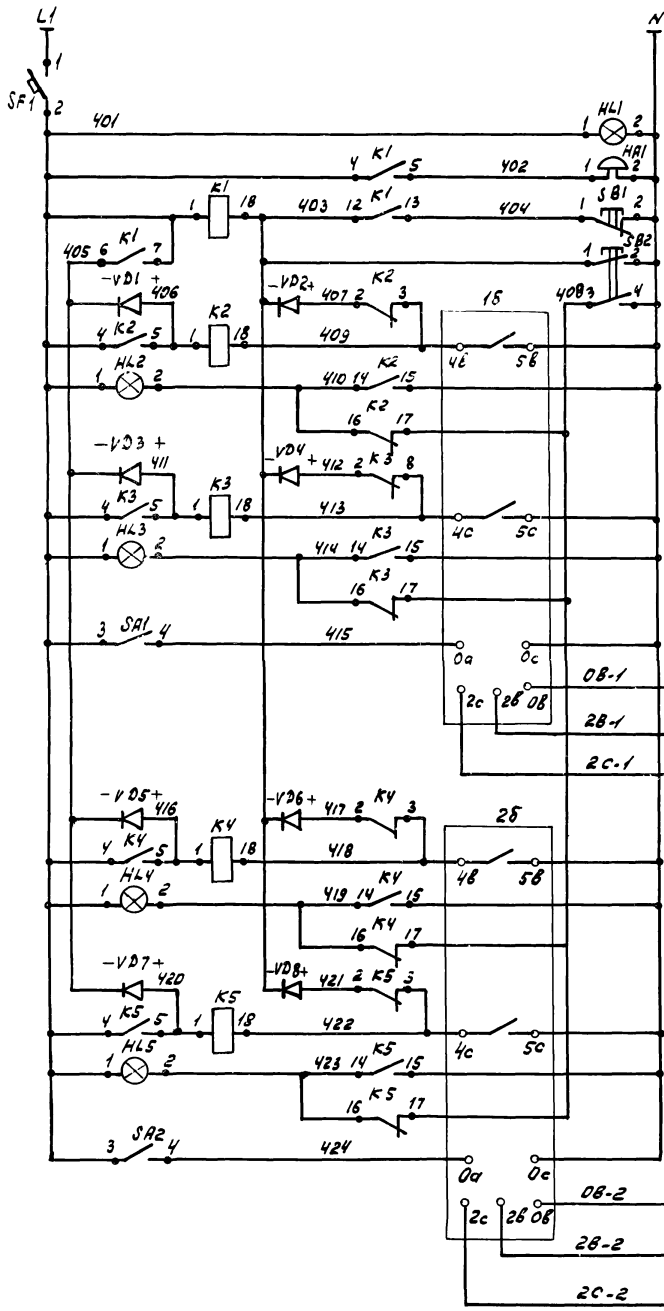 L1 N
1
SF1
2
401 1 HL1 2
4 K1 5 402 1 HA1 2
1 K1 18 403 12 K1 13 404 1 SB1 2
405 6 K1 7 1 SB2 2
-VD1+ 406 -VD2+ 407 2 K2 3 1б 408 3 4
4 K2 5 1 K2 18 409 4в 5в
1 HL2 2 410 14 K2 15
16 K2 17
-VD3+ 411 -VD4+ 412 2 K3 8
4 K3 5 1 K3 18 413 4с 5с
1 HL3 2 414 14 K3 15
16 K3 17
3 SA1 4 415 0а 0с
2с 2в 0в 0В-1
2В-1
2С-1
-VD5+ 416 -VD6+ 417 2 K4 3 2б
4 K4 5 1 K4 18 418 4в 5в
1 HL4 2 419 14 K4 15
16 K4 17
-VD7+ 420 -VD8+ 421 2 K5 3
4 K5 5 1 K5 18 422 4с 5с
1 HL5 2 423 14 K5 15
16 K5 17
3 SA2 4 424 0а 0с
2с 2в 0в 0В-2
2В-2
2С-2